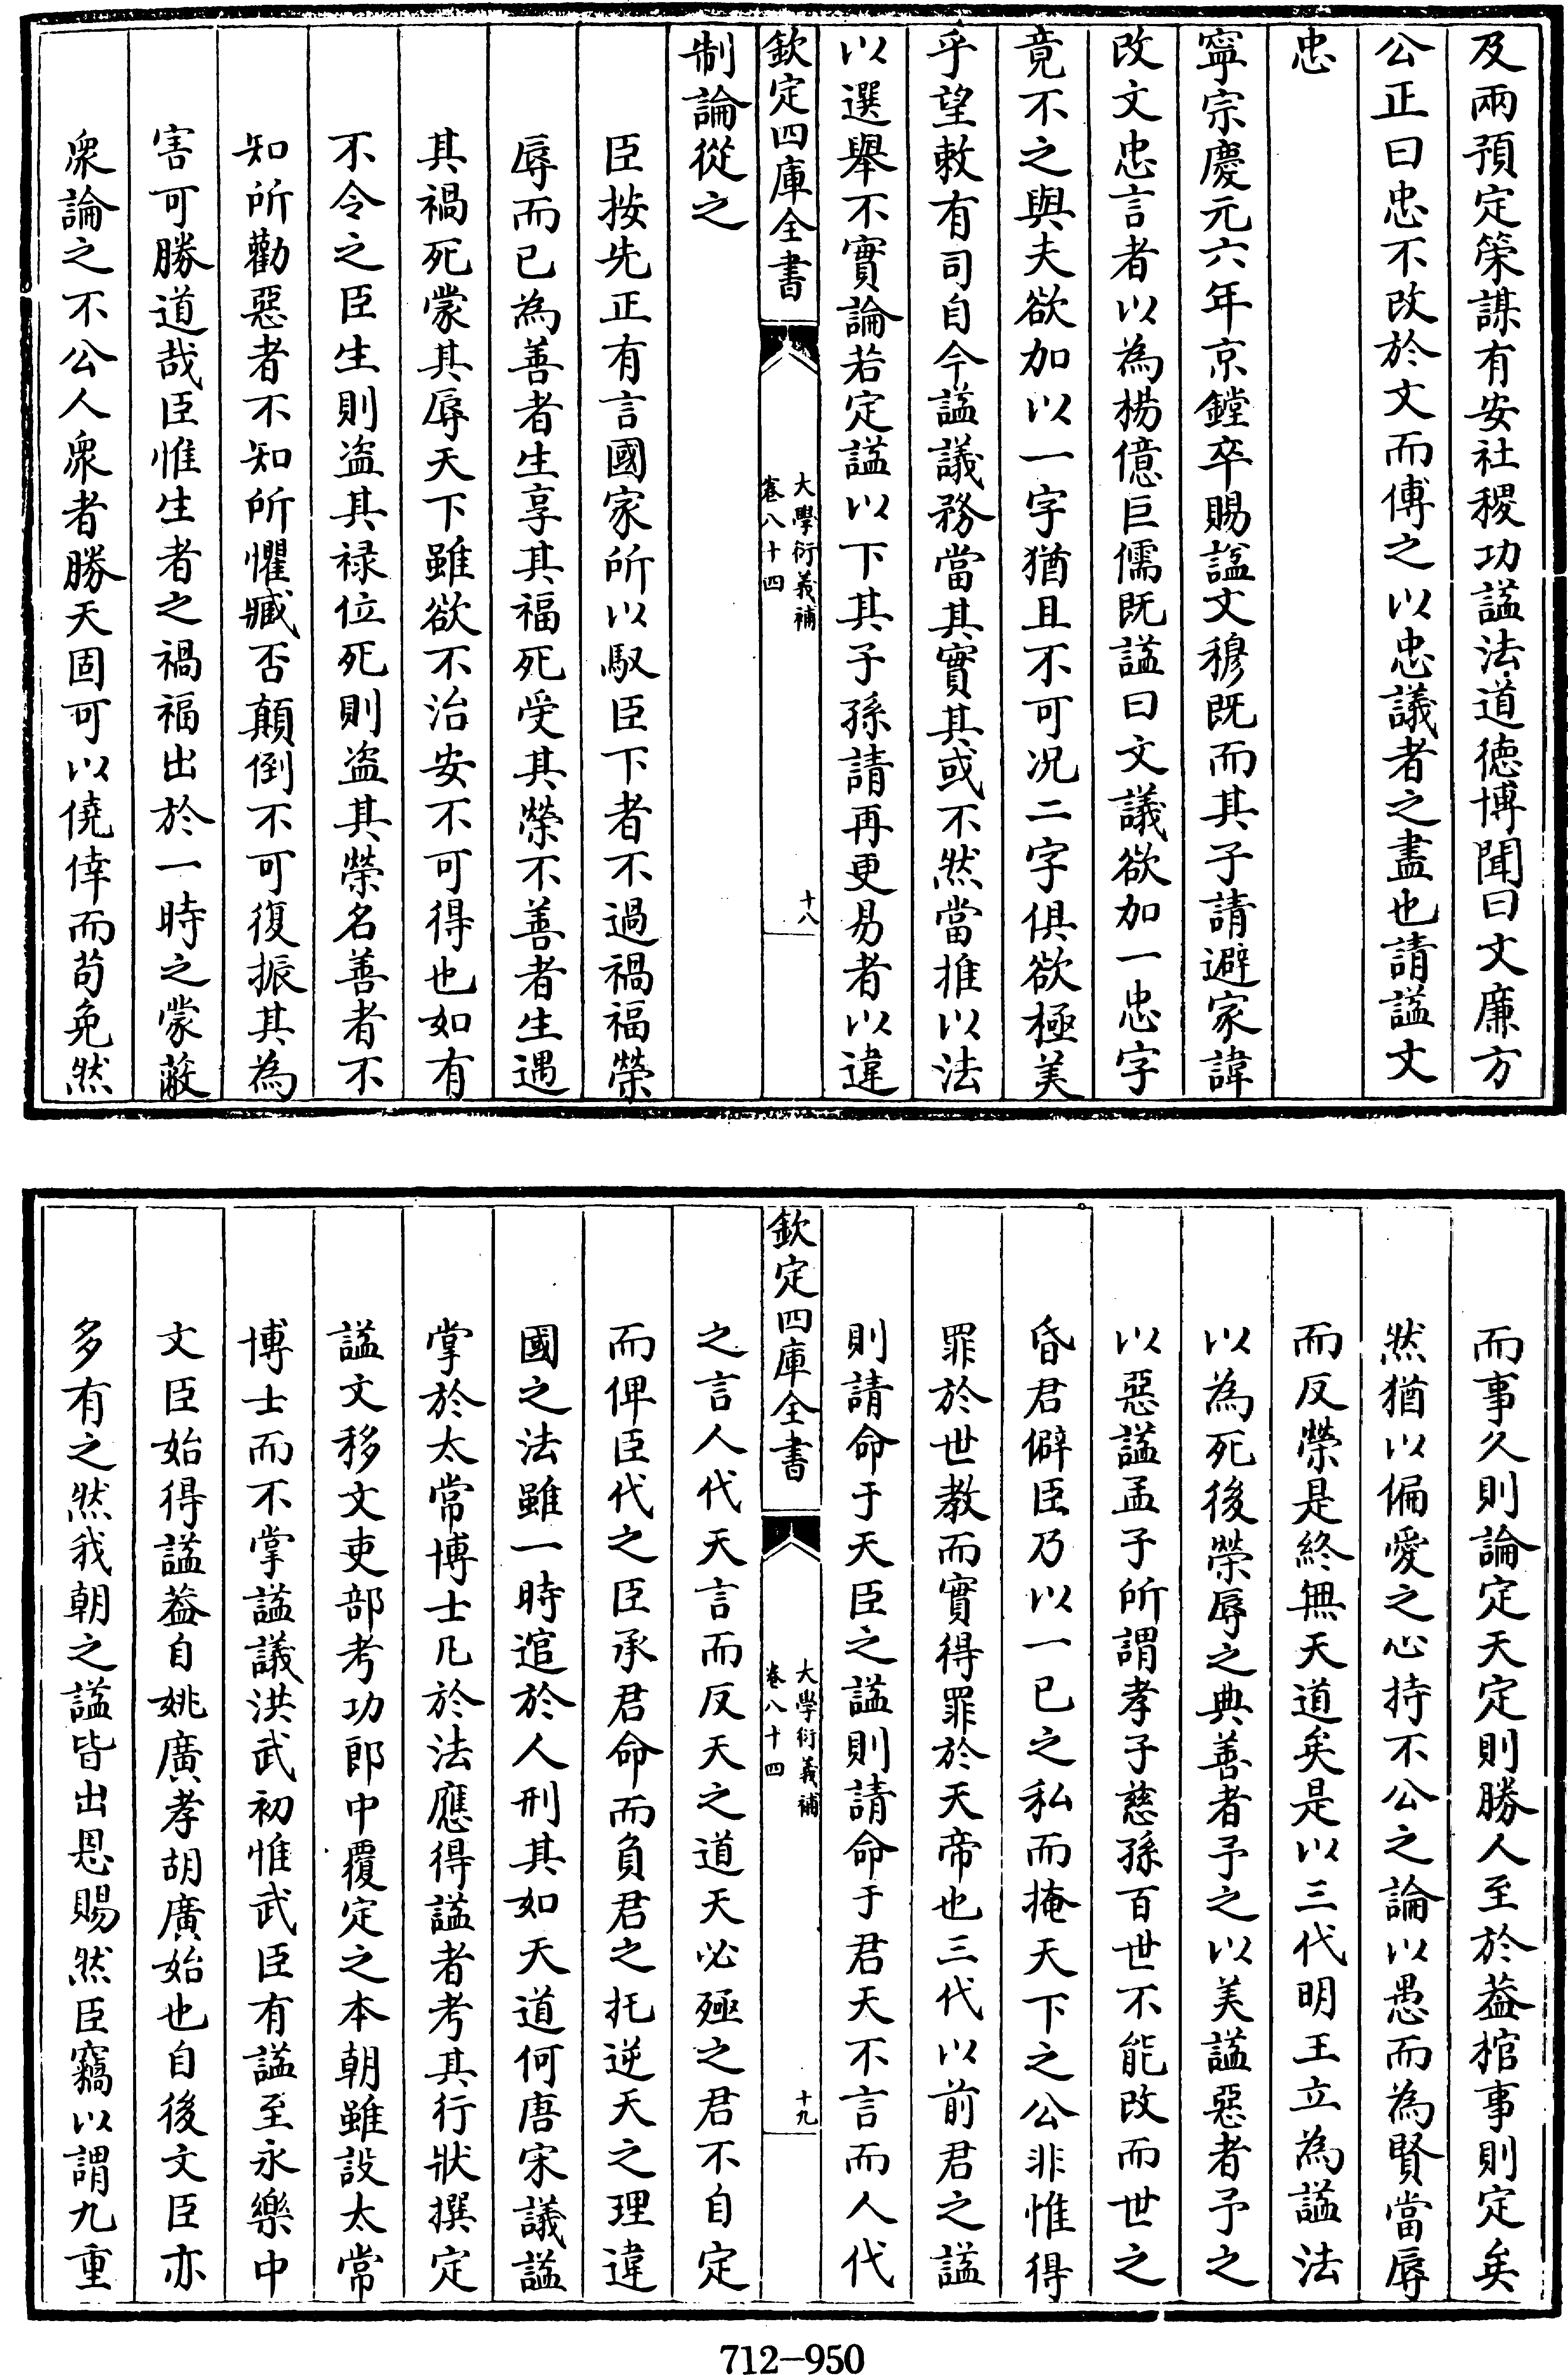 及兩預定策謀有安社稷功謚法道徳博聞曰文廉方
公正曰忠不改於文而傅之以忠議者之盡也請謚文
忠
寧宗慶元六年京鏜卒賜謚文穆既而其子請避家諱
改文忠言者以為楊億巨儒既謚曰文議欲加一忠字
竟不之與夫欲加以一字猶且不可况二字俱欲極美
乎望敕有司自今謚議務當其實其或不然當推以法
以選舉不實論若定謚以下其子孫請再更易者以違
欽定四庫全書
大學衍義補
卷八十四
十八
制論從之
臣按先正有言國家所以馭臣下者不過禍福榮
辱而已為善者生享其福死受其榮不善者生遇
其禍死蒙其辱天下雖欲不治安不可得也如有
不令之臣生則盗其禄位死則盗其榮名善者不
知所勸惡者不知所懼臧否顛倒不可復振其為
害可勝道哉臣惟生者之禍福出於一時之蒙蔽
衆論之不公人衆者勝天固可以僥倖而苟免然
而事久則論定天定則勝人至於葢棺事則定矣
然猶以偏愛之心持不公之論以愚而為賢當辱
而反榮是終無天道矣是以三代明王立為謚法
以為死後榮辱之典善者予之以美謚惡者予之
以惡謚孟子所謂孝子慈孫百世不能改而世之
昏君僻臣乃以一已之私而掩天下之公非惟得
罪於世教而實得罪於天帝也三代以前君之謚
則請命于天臣之謚則請命于君天不言而人代
欽定四庫全書
大學衍義補
卷八十四
十九
之言人代天言而反天之道天必殛之君不自定
而俾臣代之臣承君命而負君之托逆天之理違
國之法雖一時逭於人刑其如天道何唐宋議謚
掌於太常博士凡於法應得謚者考其行狀撰定
謚文移文吏部考功郎中覆定之本朝雖設太常
博士而不掌謚議洪武初惟武臣有謚至永樂中
文臣始得謚葢自姚廣孝胡廣始也自後文臣亦
多有之然我朝之謚皆出恩賜然臣竊以謂九重
712-950